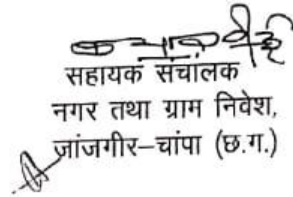 सहायक संचालक
नगर तथा ग्राम निवेश,
जांजगीर–चांपा (छ.ग.)